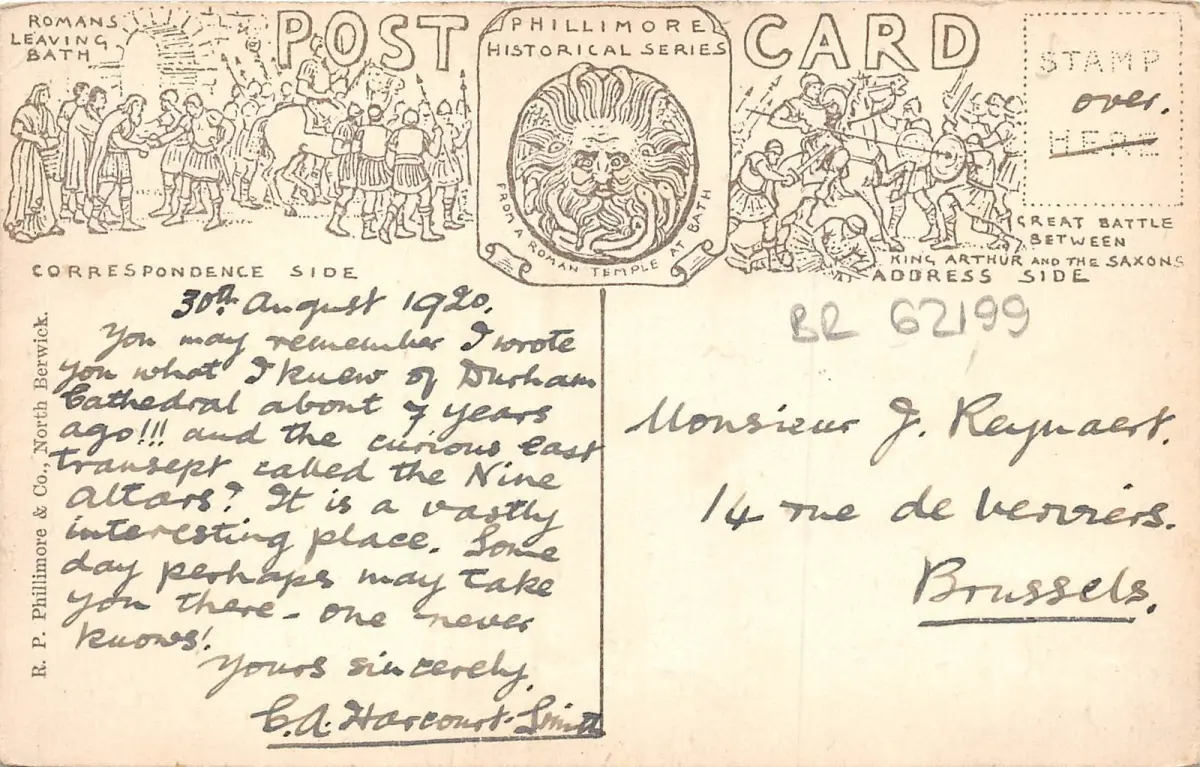 ROMANS
LEAVING
BATH
POST
PHILLIMORE
HISTORICAL SERIES
CARD
FROM A ROMAN TEMPLE AT BATH
STAMP
over.
HERE
GREAT BATTLE
BETWEEN
KING ARTHUR AND THE SAXONS
CORRESPONDENCE SIDE
ADDRESS SIDE
R. P. Phillimore & Co., North Berwick.
30th August 1920.
You may remember I wrote
you what I knew of Durham
Cathedral about 7 years
ago!!! and the curious east
transept called the Nine
Altars? It is a vastly
interesting place. Some
day perhaps may take
you there - one never
knows!
Yours sincerely,
C.A. Harcourt-Smith
BR 62199
Monsieur J. Reynaert.
14 rue de Verviers.
Brussels.